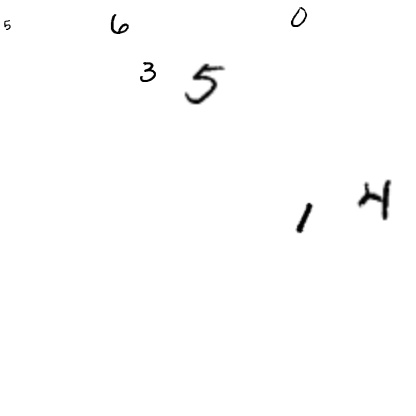 5 6 0
3 5
1 4